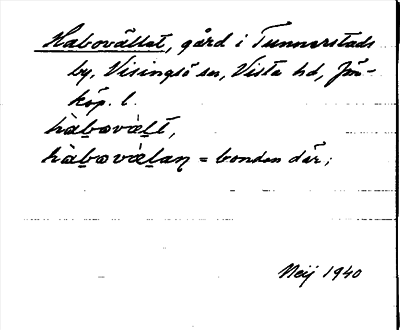 Habovället, gård i Tunnerstads
by, Visingsö sn, Vista hd, Jön-
köp. l.
hàbovàḷt,
hàbovàḷaɳ = bonden där;
Neij 1940